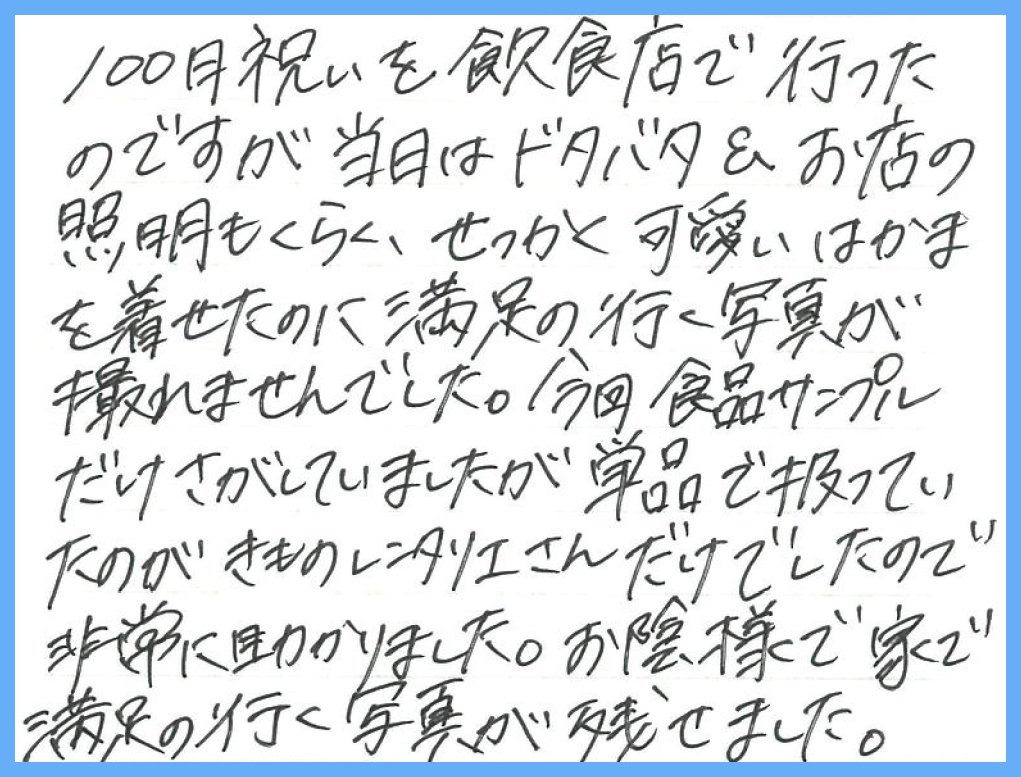 100日祝いを飲食店で行った
のですが当日はドタバタ&お店の
照明もくらく、せっかく可愛いはかま
を着せたのに満足の行く写真が
撮れませんでした。今回食品サンプル
だけさがしていましたが単品で扱ってい
たのがきものレンタリエさんだけでしたので
非常に助かりました。お陰様で家で
満足の行く写真が残せました。